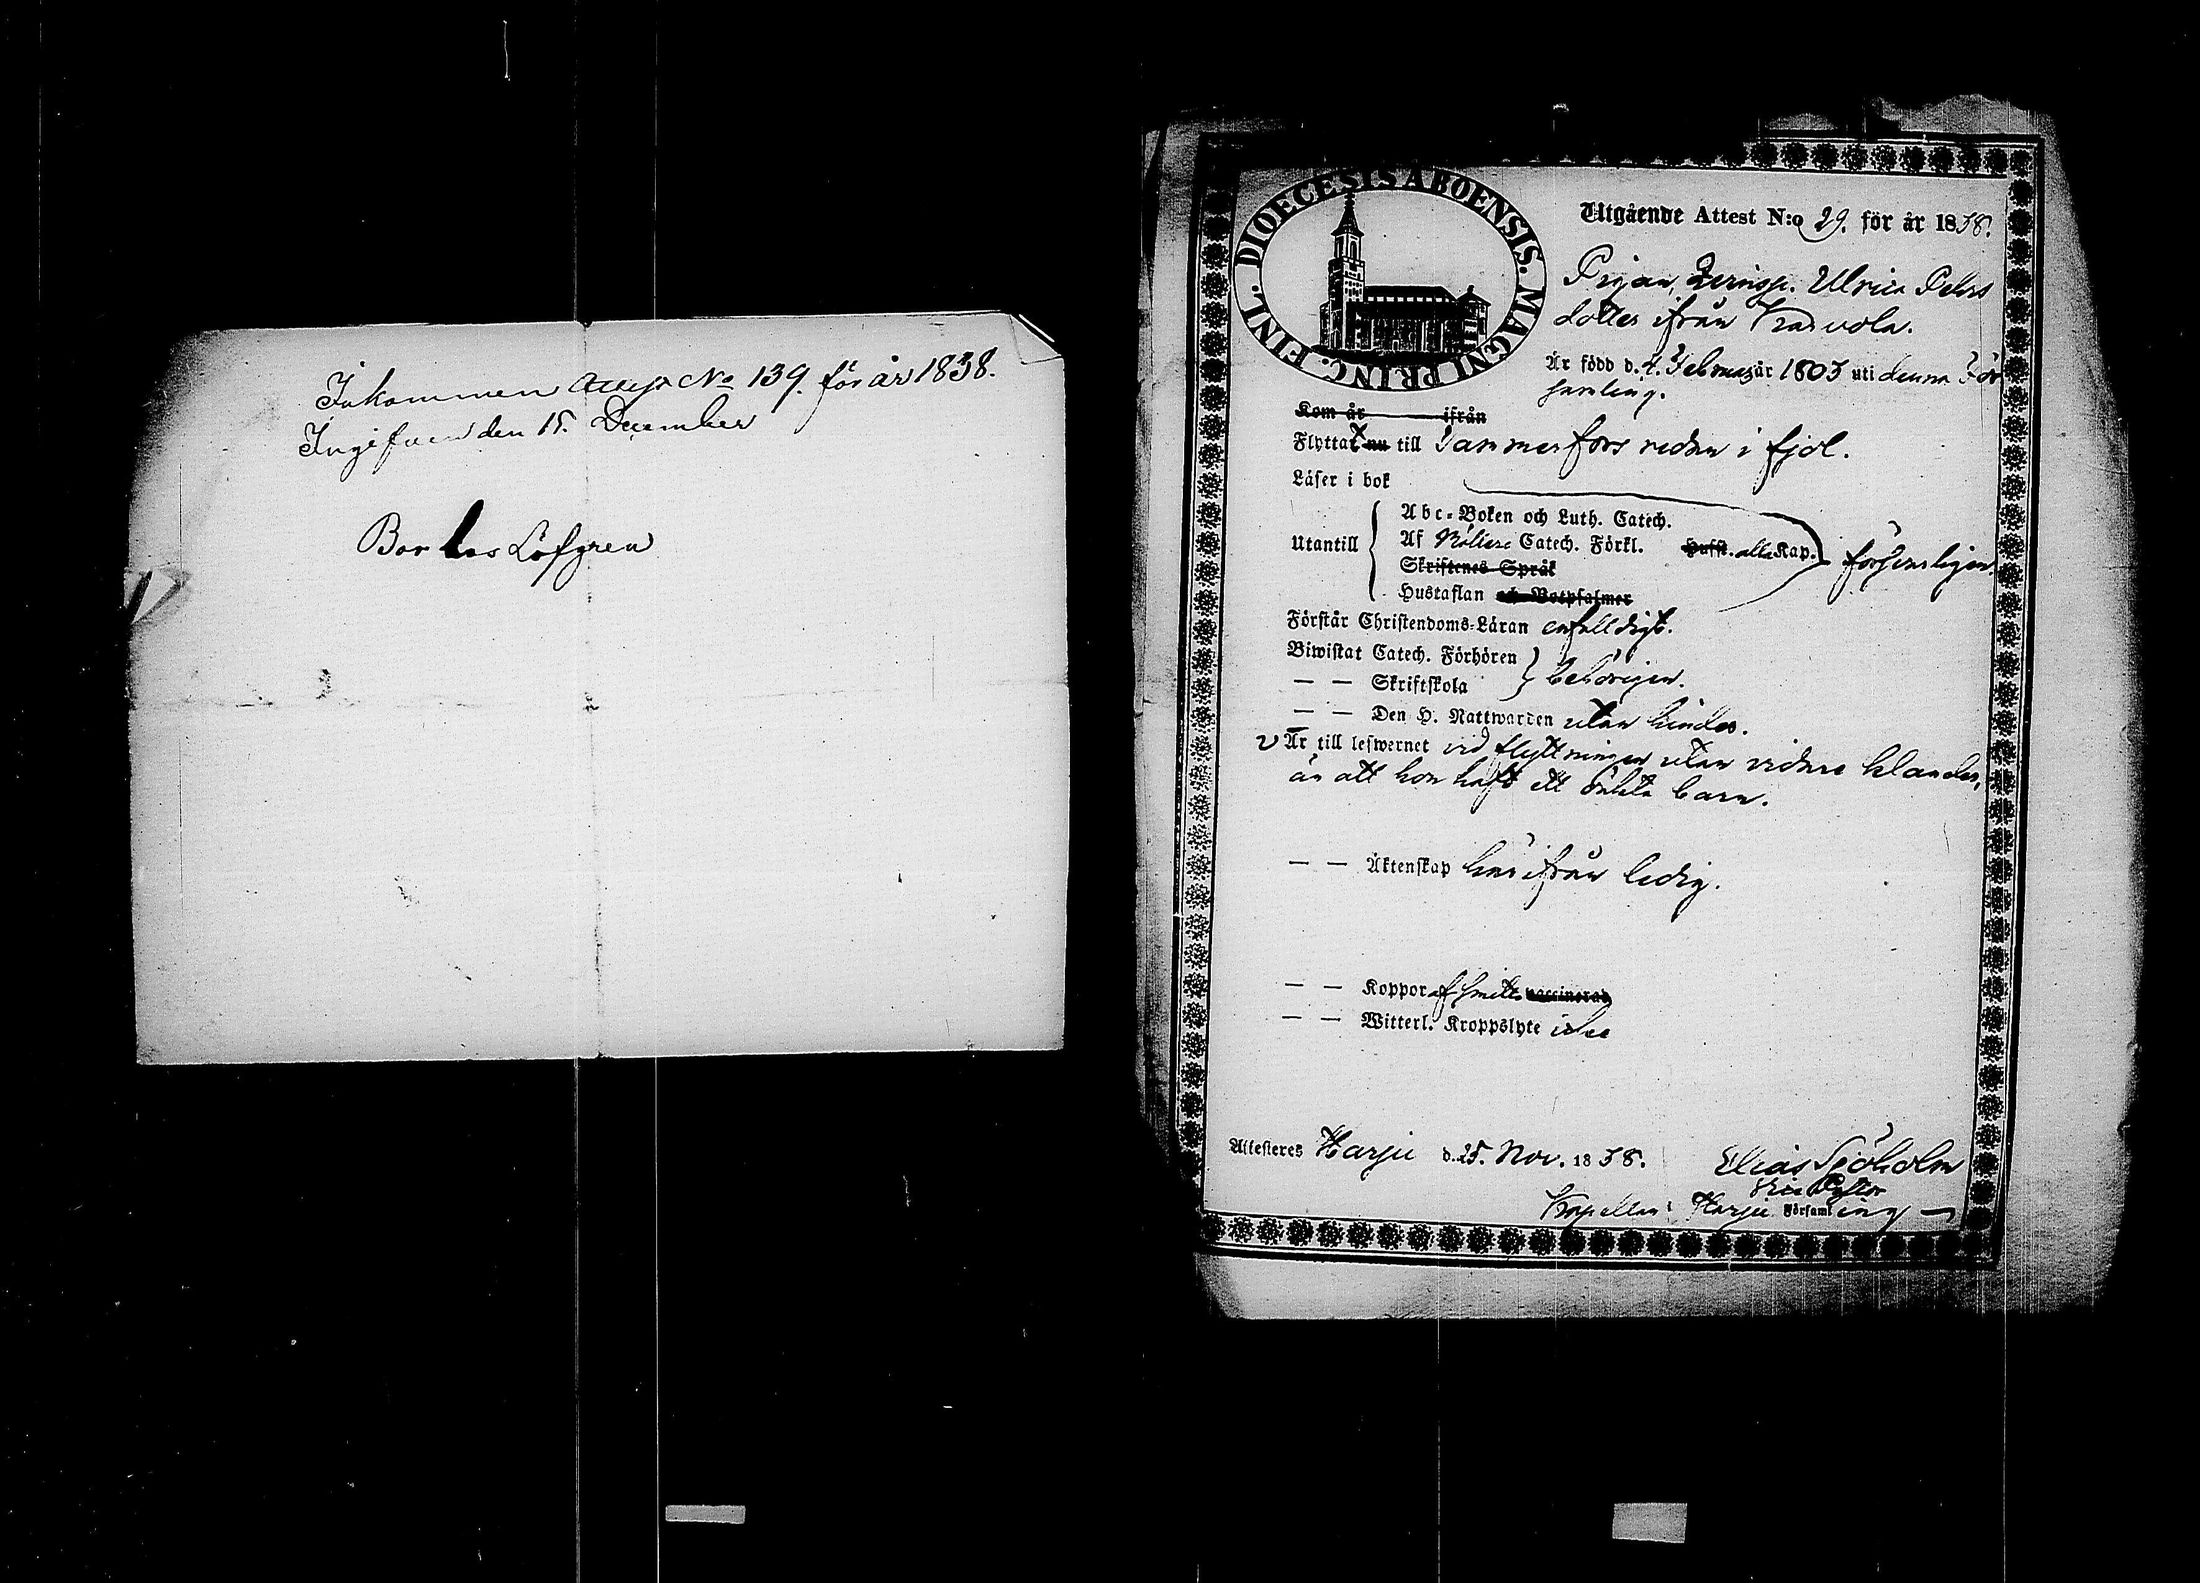 Inkommen Attest No 139. för år 1838.
Ingifven den 15. December
Löfgren
DIOECESIS ABOENSIS. MAGNI PRINC. FINL.
Utgående Attest N:o 29. för år 1838.
Pigan, Ulrica Peters
dotter ifrån Karvola.
Är född d. 4. Februarii år 1803 uti denna För
samling.
Kom år ifrån
Flyttat nu till Tammerfors redan i fjol.
Läser i bok
Utantill
Abc-Boken och Luth. Catech.
Af Catech. Förkl. Husst. alla Kap.
Skriftenes Språk
Hustaflan och Botpsalmer
försvarligen.
Förstår Christendoms-Läran enfalldigt.
Biwistat Catech. Förhören
— — Skriftskola
behörigen.
— — Den H. Nattwarden utan hinder.
Är till lefwernet vid flyttningen utan vidare klander,
än att hon haft ett oäkta barn.
— — Äktenskap härifrån ledig.
— — Koppor af smitta vaccinerad
— — Witterl. Kroppslyte icke
Attesteres Harju d. 25. Nov. 1838.
Elias Sjöholm
Vice Pastor
Kapellan i Harju Församling